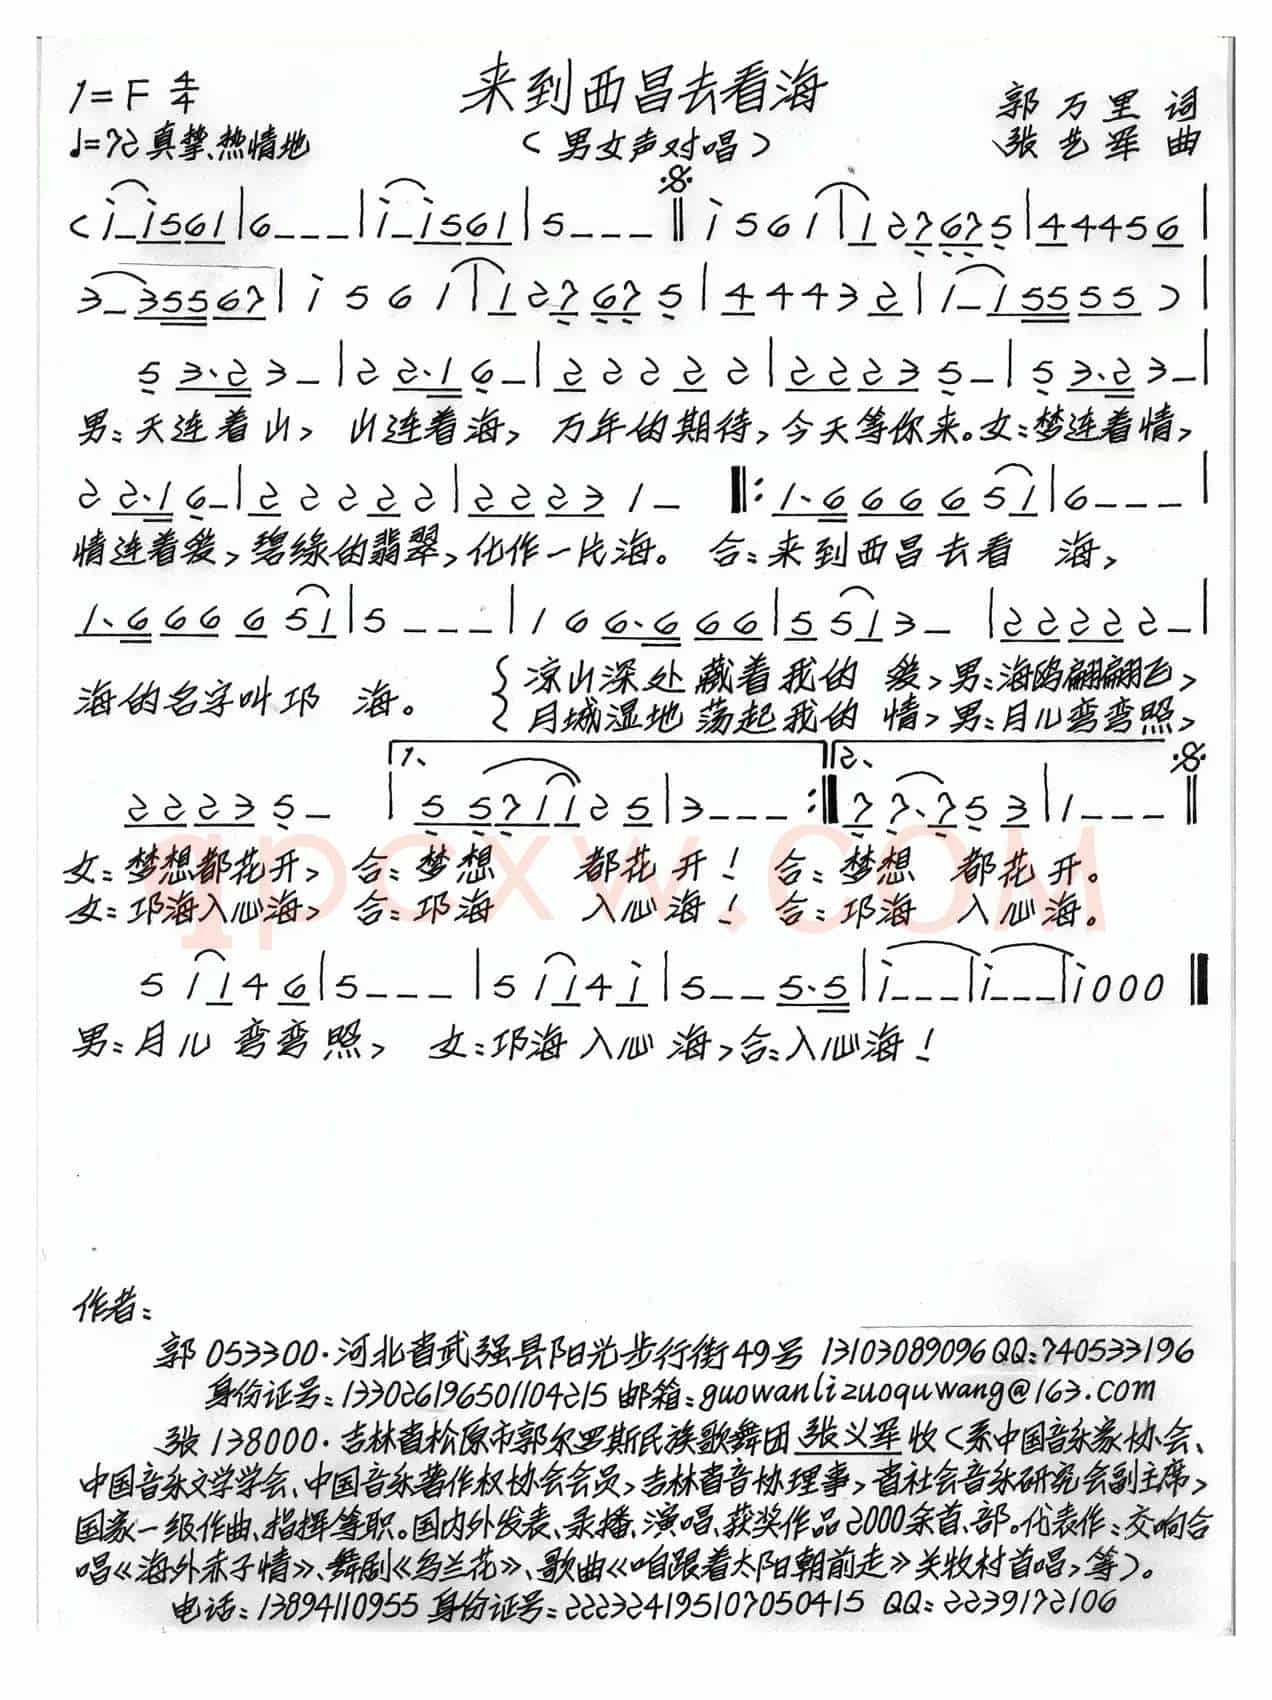 来到西昌去看海
1=F 4/4
郭万里 词
♩=72 真挚、热情地
(男女声对唱)
张艺军 曲
(i_i561|6___|i_i561|5___‖i561|127675|444456|
3_35567|i561|127675|44432|1_15555)|
53·23_|22·16_|22222|22235_|53·23_|
男:天连着山, 山连着海, 万年的期待,今天等你来。女:梦连着情,
22·16_|22222|22231_‖:1·666651|6___|
情连着爱,碧绿的翡翠,化作一片海。 合:来到西昌去看 海,
1·666651|5___|166·6666|5513_|22222_|
海的名字叫邛 海。
凉山深处藏着我的 爱,男:海鸥翩翩飞,
月城湿地荡起我的 情,男:月儿弯弯照,
1、 2、
22235_|5571125|3___:‖77·753|1___‖
女:梦想都花开, 合:梦想 都花开! 合:梦想 都花开。
女:邛海入心海, 合:邛海 入心海! 合:邛海 入心海。
qpcxw.COM
51146|5___|5114i|5__5·5|i___|i___|i000‖
男:月儿弯弯照, 女:邛海入心海,合:入心海!
作者:
郭 053300·河北省武强县阳光步行街49号 13103089096 QQ:740533196
身份证号:133026196501104215 邮箱:guowanlizuoquwang@163.com
张 138000·吉林省松原市郭尔罗斯民族歌舞团 张义军 收(系中国音乐家协会、
中国音乐文学学会、中国音乐著作权协会会员,吉林省音协理事,省社会音乐研究会副主席,
国家一级作曲、指挥等职。国内外发表、录播、演唱、获奖作品2000余首、部。代表作:交响合
唱《海外赤子情》、舞剧《乌兰花》、歌曲《咱跟着太阳朝前走》关牧村首唱,等)。
电话:13894110955 身份证号:222324195107050415 QQ:2239172106